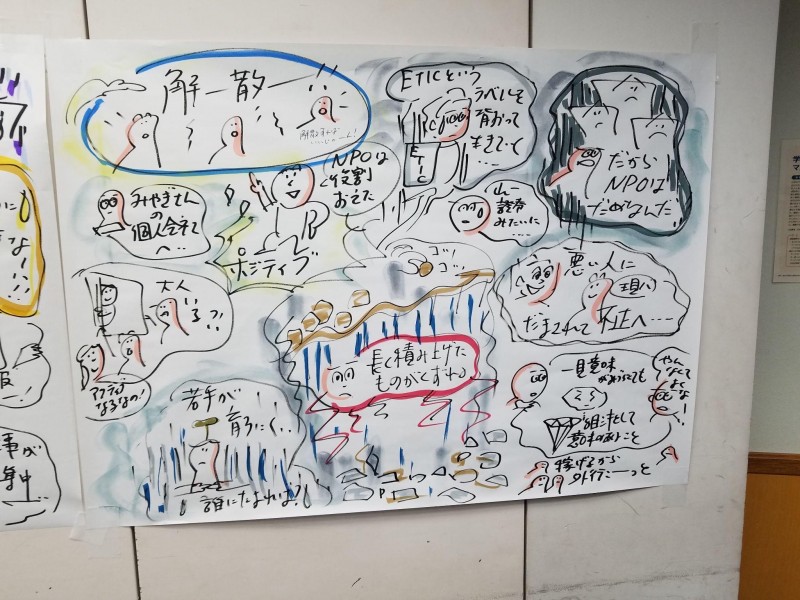 解散!!
ETICという
ラベルを
背負って
生きていく
……
ETIC
だから
NPOは
だめなんだ
みやぎさん
の
個人会社
へ…
NPOは
役割
おえた
ポジティブ
山一
證券
みたいに
…
大人
いる?!
アクティブ
なるなの!
ゴッ
ゴッ
長く積み上げた
ものがくずれる
悪い人に
だまされて
不正へ……
若手が
育ちにくく…
誰にたよれば?!
一見意味
組織として
意味のあること
やん
なくて
よく
な
稼げるから
事が
集中